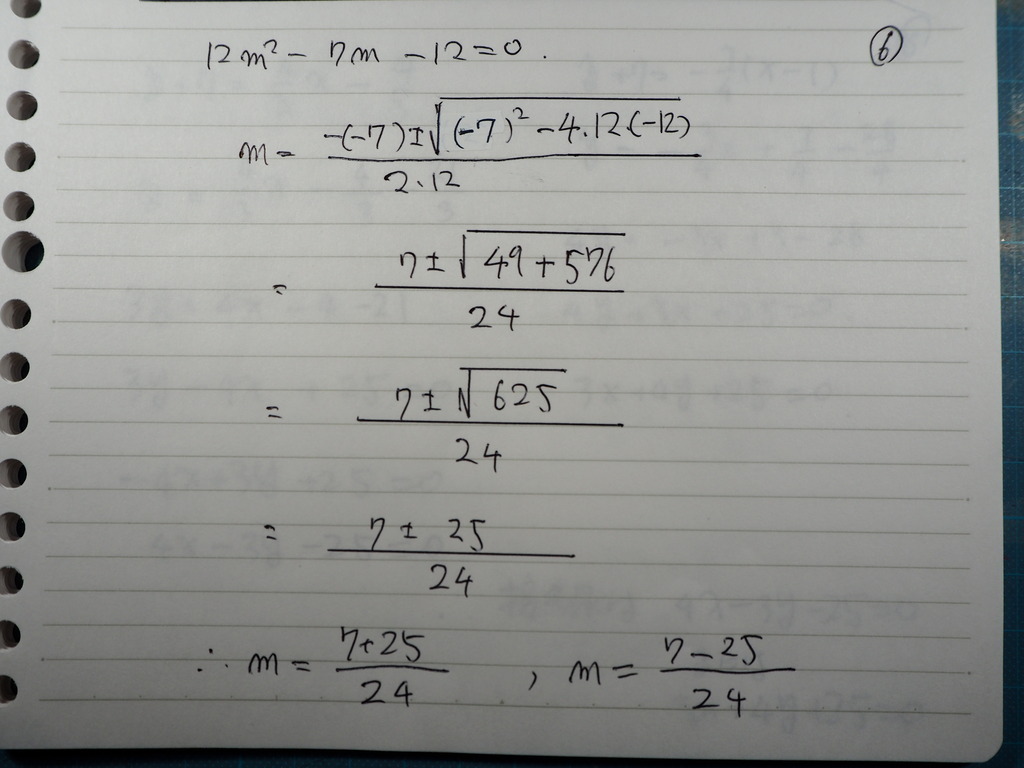 12m² - 7m - 12 = 0.
⑥
m = -(-7)±√(-7)² - 4.12.(-12) / 2.12
= 7±√49+576 / 24
= 7±√625 / 24
= 7 ± 25 / 24
∴ m = 7+25 / 24 , m = 7-25 / 24